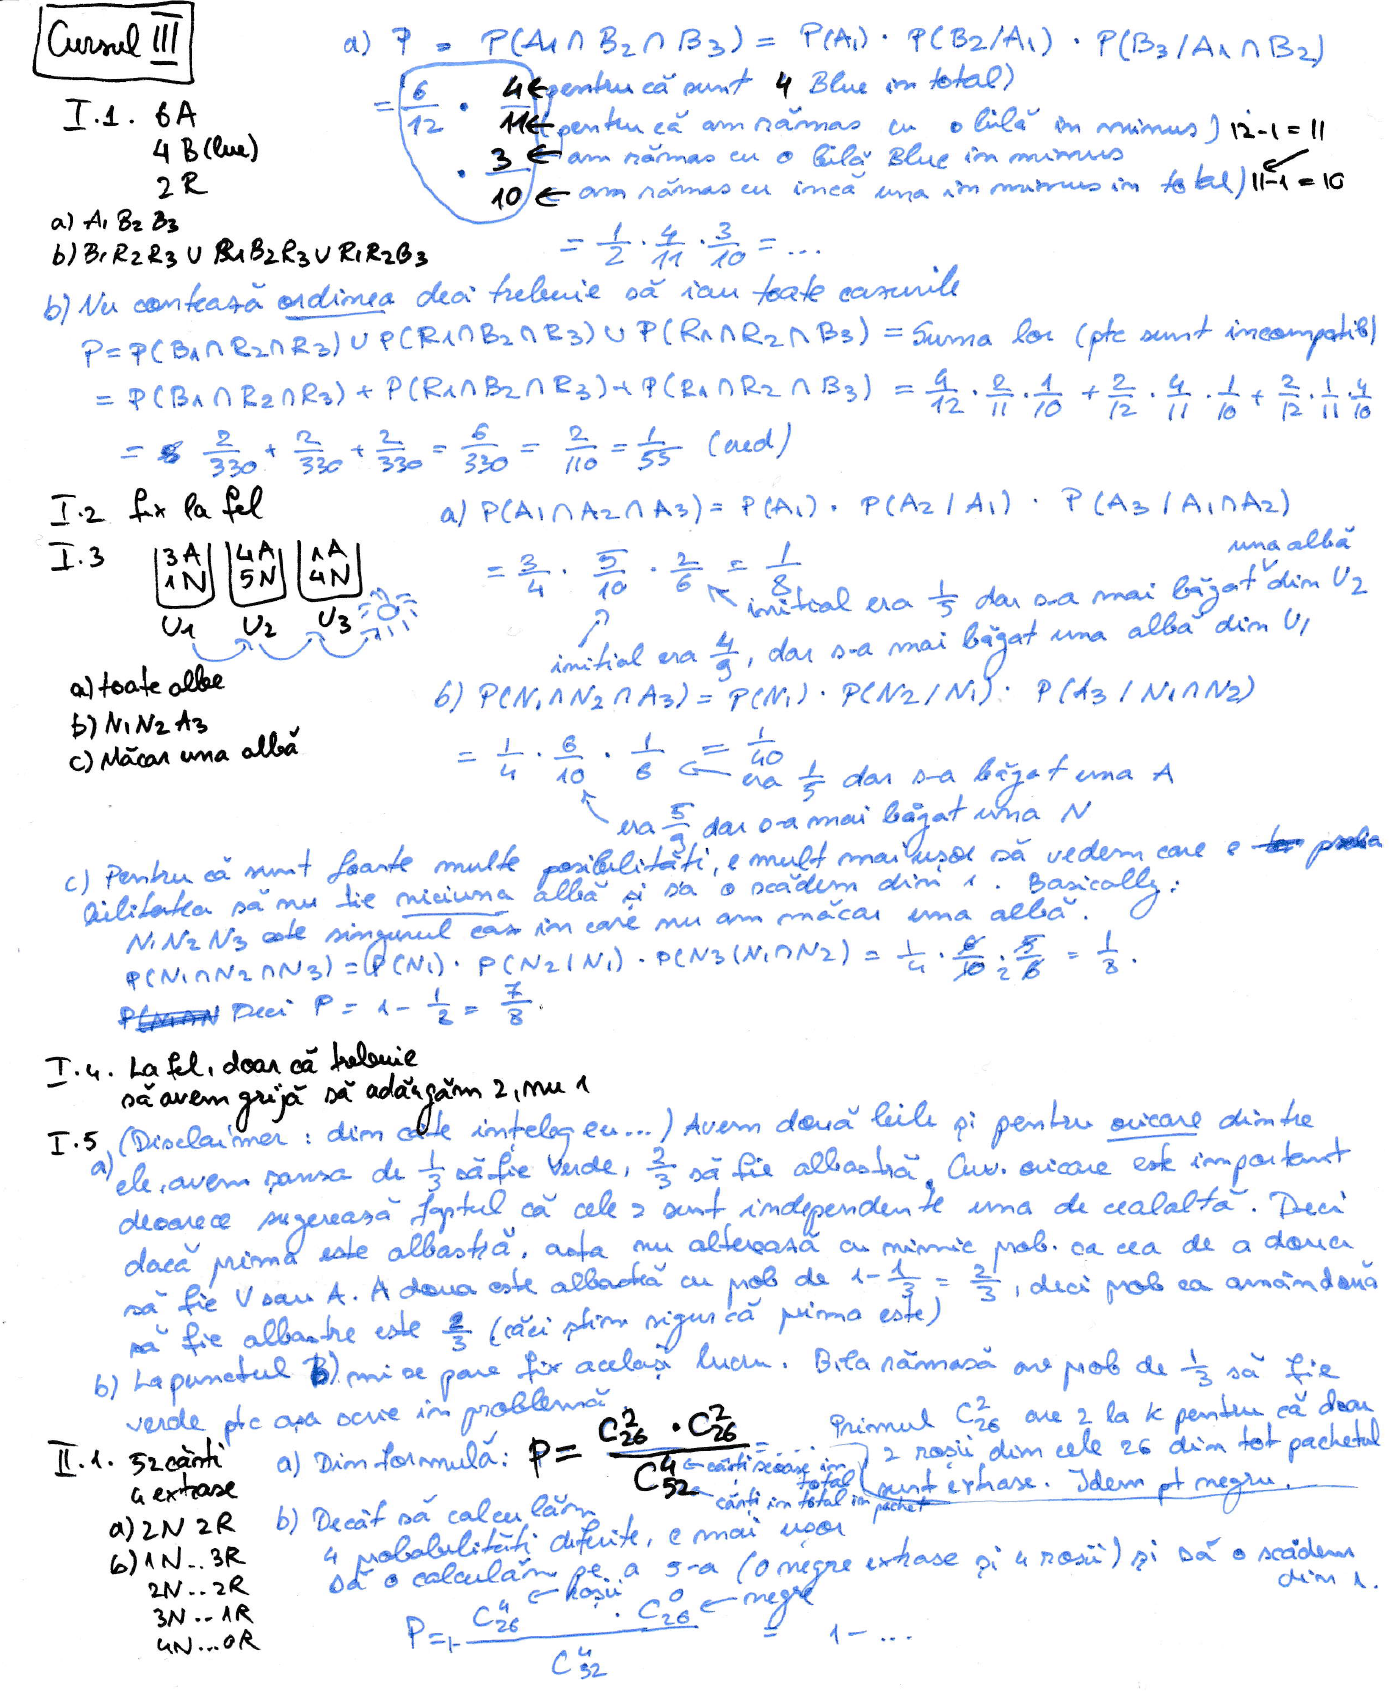 Cursul III
a) P = P(A1 ∩ B2 ∩ B3) = P(A1) · P(B2/A1) · P(B3/A1 ∩ B2)
= 6/12 · 4/11 · 3/10
4 ← pentru că sunt 4 Blue in total)
11 ← (pentru că am rămas cu o bilă in minus) 12-1 = 11
3 ← am rămas cu o bilă Blue in minus
10 ← am rămas cu incă una in minus in total) 11-1 = 10
= 1/2 · 4/11 · 3/10 = ...
I.1. 6A
4 B(lue)
2 R
a) A1 B2 B3
b) B1R2R3 ∪ R1B2R3 ∪ R1R2B3
b) Nu contează ordinea deci trebuie să iau toate cazurile
P = P(B1∩R2∩R3) ∪ P(R1∩B2∩R3) ∪ P(R1∩R2∩B3) = Suma lor (ptc sunt incompatib)
= P(B1∩R2∩R3) + P(R1∩B2∩R3) + P(R1∩R2∩B3) = 4/12 · 2/11 · 1/10 + 2/12 · 4/11 · 1/10 + 2/12 · 1/11 · 4/10
= 2/330 + 2/330 + 2/330 = 6/330 = 2/110 = 1/55 (cred)
I.2 fix la fel
I.3
3A 4A 1A
1N 5N 4N
U1 U2 U3
a) toate albe
b) N1N2A3
c) Măcar una albă
a) P(A1∩A2∩A3) = P(A1) · P(A2/A1) · P(A3/A1∩A2)
= 3/4 · 5/10 · 2/6 = 1/8
una albă
initial era 1/5 dar s-a mai băgat din U2
initial era 4/9, dar s-a mai băgat una albă din U1
b) P(N1∩N2∩A3) = P(N1) · P(N2/N1) · P(A3/N1∩N2)
= 1/4 · 6/10 · 1/6 = 1/40
era 1/5 dar s-a băgat una A
era 5/9 dar s-a mai băgat una N
c) Pentru că sunt foarte multe posibilități, e mult mai ușor să vedem care e proba
bilitatea să nu fie niciuna albă și sa o scădem din 1. Basically:
N1N2N3 este singurul caz in care nu am măcar una albă.
P(N1∩N2∩N3) = P(N1) · P(N2/N1) · P(N3/N1∩N2) = 1/4 · 6/10 · 5/6 = 1/8.
Deci P = 1 - 1/2 = 7/8.
I.4. La fel, doar că trebuie
să avem grijă să adăugăm 2, nu 1
I.5 (Disclaimer: din câte ințeleg eu...) Avem două bile și pentru oricare dintre
a) ele, avem șansa de 1/3 să fie Verde, 2/3 să fie albastră. Cuv. oricare este important
deoarece sugerează faptul că cele 2 sunt independente una de cealaltă. Deci
dacă prima este albastră, asta nu alterează cu nimic prob. ca cea de a doua
să fie V sau A. A doua este albastră cu prob de 1-1/3 = 2/3, deci prob ca amândouă
să fie albastre este 2/3 (căci știm sigur că prima este)
b) La punctul B) mi se pare fix același lucru. Bila rămasă are prob de 1/3 să fie
verde ptc așa scrie in problemă
II.1. 52 cărti
4 extrase
a) 2N 2R
b) 1N..3R
2N..2R
3N..1R
4N...0R
a) Din formulă: P = C²26 · C²26 / C⁴52 = ....
← cărti scoase in total
← cărti in total in pachet
Primul C²26 are 2 la k pentru că doar
2 roșii din cele 26 din tot pachetul
sunt extrase. Idem pt negru.
b) Decât să calculăm
4 probabilităti diferite, e mai ușor
să o calculăm pe a 5-a (0 negre extrase și 4 roșii) și să o scădem
din 1.
P = 1- C⁴26 ← Roșii · C⁰26 ← negre / C⁴52 = 1 - ...